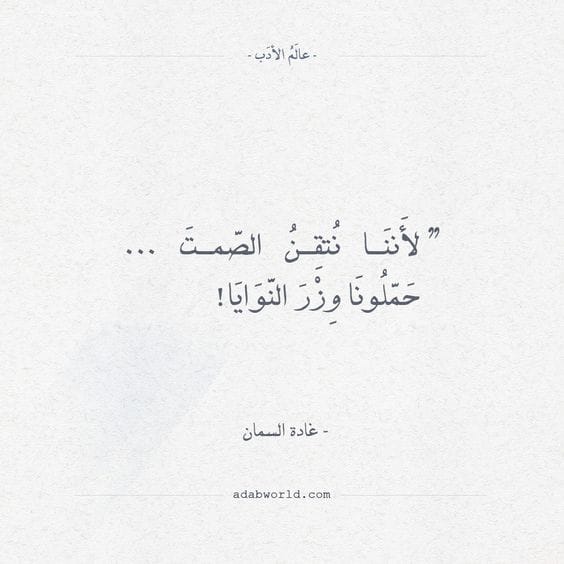 - عالَمُ الأدَب -
”لأَننَا نُتقِنُ الصّمتَ ...
حَمّلُونَا وِزْرَ النّوَايَا!
- غادة السمان
adabworld.com